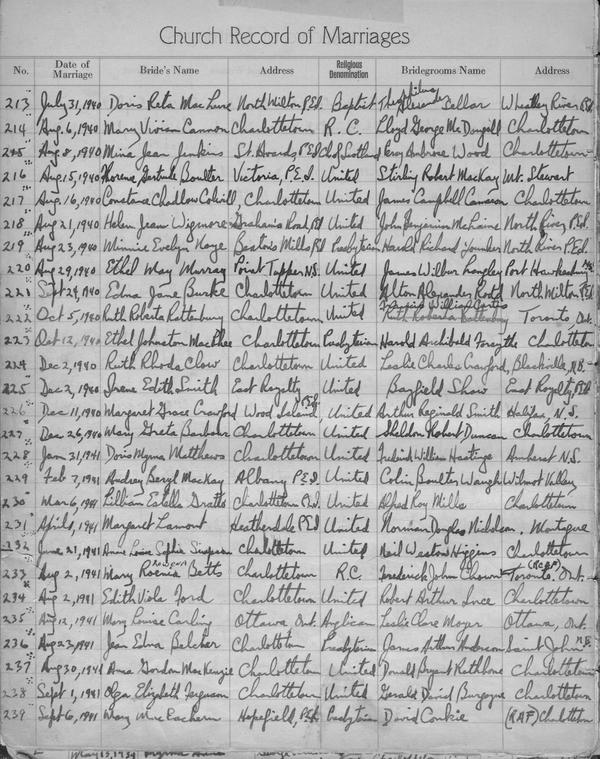 Church Record of Marriages
No. Date of Marriage Bride's Name Address Religious Denomination Bridegrooms Name Address
213 July 31, 1940 Doris Reta MacLure North Wilton P.E.I. Baptist Alexander Callar Wheatley River P.E.I.
214 Aug. 6, 1940 Mary Vivian Cannon Charlottetown R.C. Lloyd George McDougall Charlottetown
215 Aug 8, 1940 Mina Jean Jenkins P.E.I. Ch. of Scotland Percy Ambrose Wood Charlottetown
216 Aug 15, 1940 Florence Gertrude Boulter Victoria, P.E.I. United Stirling Robert MacKay Mt. Stewart
217 Aug. 16, 1940 Constance Chudlow Colwill, Charlottetown United James Campbell Cameron Charlottetown
218 Aug 21, 1940 Helen Jean Wigmore Graham's Road, P.E.I. United John Benjamin McLaine North River, P.E.I.
219 Aug 23, 1940 Minnie Evelyn Mills P.E.I. Presbyterian Harold Richard Younker North River P.E.I.
220 Aug 29, 1940 Ethel May Murray Point Tupper N.S. United James Wilbur Langley Port Hawkesbury N.S.
221 Sept 24, 1940 Edna Jane Burke Charlottetown United Alton Alexander Rodd North Milton P.E.I.
222 Oct 5, 1940 Ruth Roberta Rattenbury Charlottetown United Frederick William Curtis Ruth Roberta Rattenbury Toronto, Ont.
223 Oct 12, 1940 Ethel Johnston MacPhee Charlottetown Presbyterian Harold Archibald Forsythe Charlottetown
224 Dec 2, 1940 Ruth Rhoda Clow Charlottetown United Leslie Charles Crawford, Blackville, N.B.
225 Dec 2, 1940 Irene Edith Smith East Royalty United Bayfield Shaw East Royalty, P.E.I.
226 Dec 11, 1940 Margaret Grace Crawford Wood Island, P.E.I. United Arthur Reginald Smith Halifax, N.S.
227 Dec 26, 1940 Mary Greta Barbour Charlottetown United Sheldon Robert Duncan Charlottetown
228 Jan 31, 1941 Doris Myrna Matthews Charlottetown United Fredrick William Hastings Amherst N.S.
229 Feb 7, 1941 Audrey Beryl MacKay Albany P.E.I. United Colin Boulter Waugh Wilmot Valley
230 Mar 6, 1941 Lillian Estella Charlottetown P.E.I. United Alfred Roy Mills Charlottetown
231 April 8, 1941 Margaret Lamont Heatherdale P.E.I. United Norman Douglas Nicholson, Montague
232 June 21, 1941 Annie Louise Sophia Simpson Charlottetown United Neil Waston Higgins Charlottetown
233 Aug 2, 1941 Mary Betts Charlottetown R.C. Frederick John Chown Toronto, Ont. (RCAF)
234 Aug 2, 1941 Edith Viola Ford Charlottetown United Robert Arthur Ince Charlottetown
235 Aug 12, 1941 Mary Louise Carling Ottawa Ont. Anglican Leslie Clare Moyer Ottawa, Ont.
236 Aug 23, 1941 Jean Edna Belcher Charlottetown Presbyterian James Arthur Anderson Saint John N.B.
237 Aug 30, 1941 Anna Gordon MacKenzie Charlottetown United Donald Bryant Rathbone Charlottetown
238 Sept 1, 1941 Olga Elizabeth Ferguson Charlottetown United Gerald David Burgoyne Charlottetown
239 Sept 6, 1941 Mary MacEachern Hopefield, P.E.I. Presbyterian David Conkie (RAF) Charlottetown
May 15, 1934